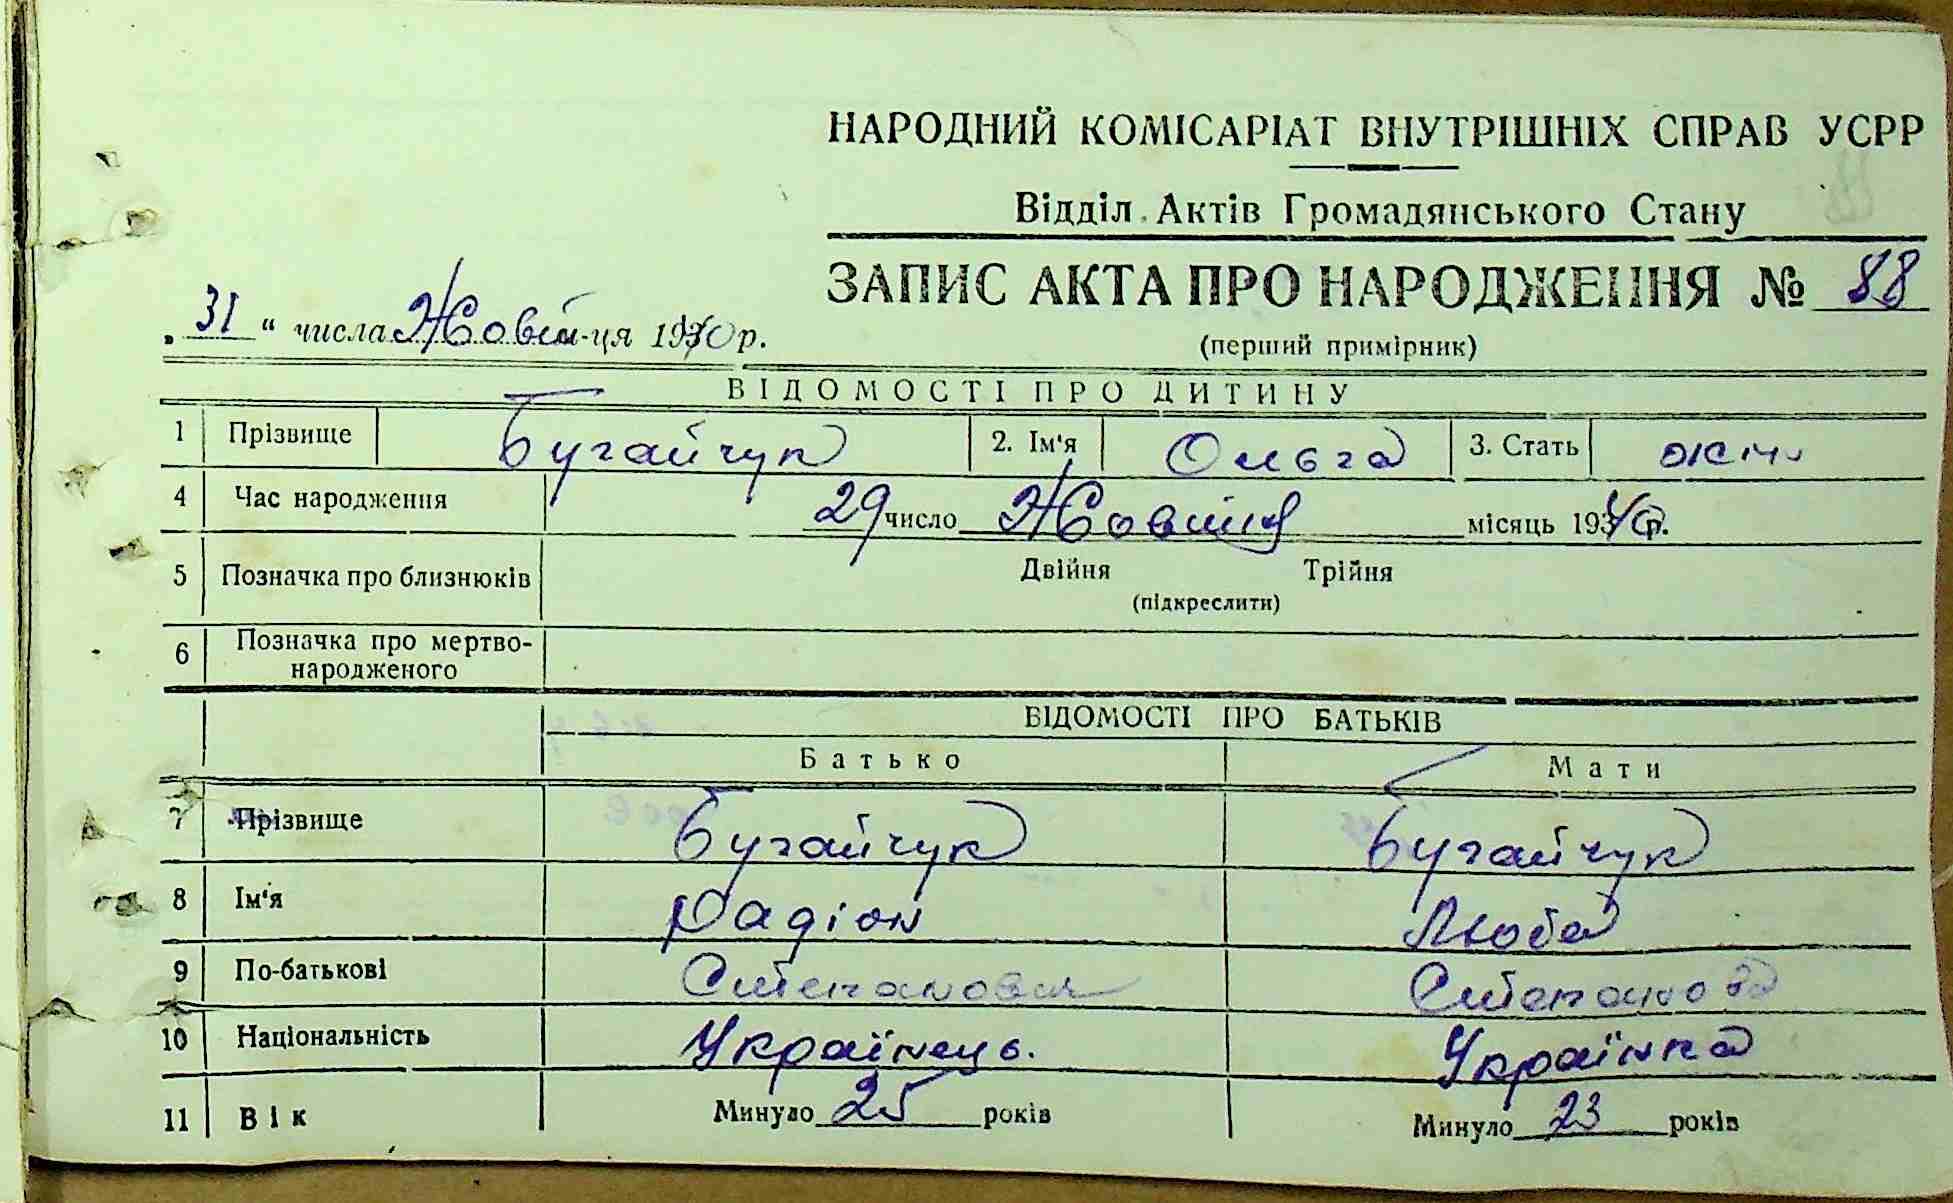 НАРОДНИЙ КОМІСАРІАТ ВНУТРІШНІХ СПРАВ УСРР
Відділ Актів Громадянського Стану
ЗАПИС АКТА ПРО НАРОДЖЕННЯ № 88
„ 31 “ числа Жовтн-ця 1940 р.
(перший примірник)
ВІДОМОСТІ ПРО ДИТИНУ
1 Прізвище Бугайчук 2. Ім'я Ольга 3. Стать жін
4 Час народження 29 число Жовтня місяць 1940 р.
5 Позначка про близнюків Двійня Трійня
(підкреслити)
6 Позначка про мертво-
народженого
ВІДОМОСТІ ПРО БАТЬКІВ
Батько Мати
7 Прізвище Бугайчук Бугайчук
8 Ім'я Радіон Люба
9 По-батькові Степанович Степанова
10 Національність Українець. Українка
11 Вік Минуло 25 років Минуло 23 років